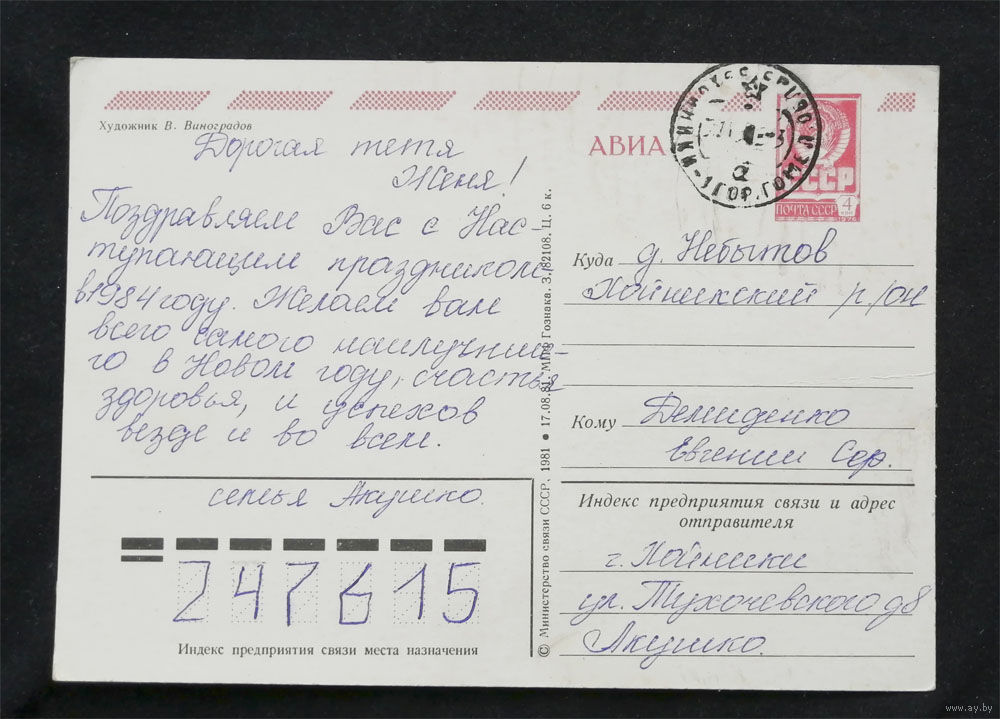 Художник В. Виноградов
Дорогая тетя
Женя!
Поздравляем Вас с Нас-
тупающим праздником
в 1984 году. Желаем вам
всего самого наилучше-
го в Новом году, счастья
здоровья, и успехов
везде и во всем.
семья Якушко.
247615
Индекс предприятия связи места назначения
© Министерство связи СССР. 1981 • 17.08.81. МПФ Гознака. З. 82108. Ц. 6 к.
АВИА
СССР
ПОЧТА СССР
4
коп
1976
Куда д. Небытов
Хойникский р/он
Кому Демиденко
Евгении Сер.
Индекс предприятия связи и адрес
отправителя
г. Хойники
ул. д 8
Якушко.
www.ay.by